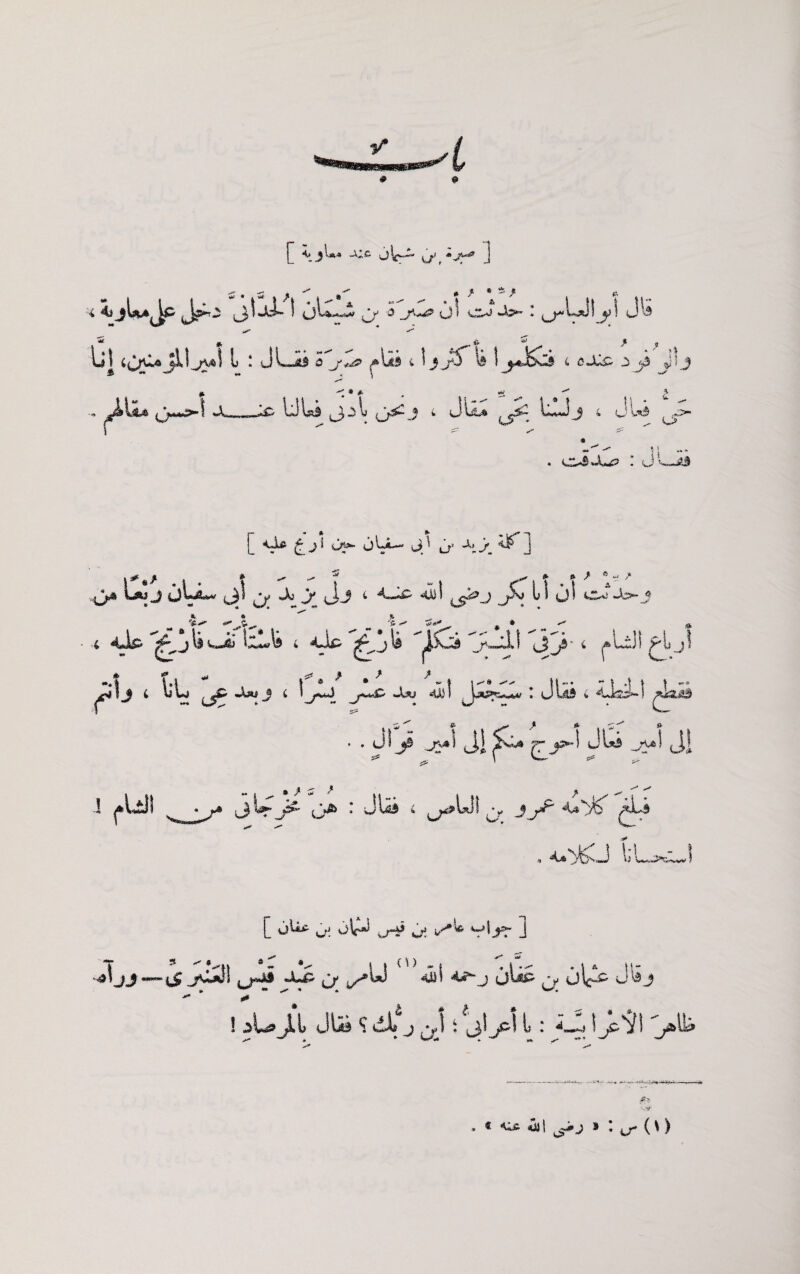 باب
[ صبرة بن شيمان عند معاوية ]
قال أبو العباس : حُدِّثْتُ أن صَبِرة بن شَيْمان الحُدّانيَّ دخل على معاوية ،
والوُفُود عنده ، فتكلّموا فأكثروا ، فقام صَبِرةُ فقال : يا أمير المؤمنين، إنا
حيُّ فَعال ، ولسنا بحيِّ مَقال ، ونحن بأدنى فعالنا عند أحسن مقالهم .
فقال : صدقت .
[ كلمة يزيد بن أبي سفيان حين أرتج عليه ]
وحُدِّثْتُ أن أبا بكر رضي الله عنه ، ولّى يزيد بن أبي سفيان رُبْعًا من
أرباع الشام ، فرقِيَ المنبر فتكلّم فأُرتج عليه ، فاستأنف فأُرتج عليه ،
فقطع الخطبة ، فقال : سيجعل الله بعد عُسْرٍ يُسْرًا ، وبعد عِيٍّ بيانًا ، وأنتم
إلى أميرٍ فعّال أحوجُ منكم إلى أميرٍ قوّال . .
فبلغ كلامُه عمرو بن العاص ، فقال : هُنَّ مُخرِجاتي من الشأم !
استحسانًا لكلامه .
[ جواب عامر بن قيس لعثمان بن عفان ]
وقال عثمان بن عفان رحمه الله (١) لعامر بن عبد قيس العنبري — ورآه
ظاهرَ الأعرابيّة : يا أعرابيُّ ، أين ربُّك ؟ فقال بالمرصاد !
(١) س : « رضي الله عنه » .